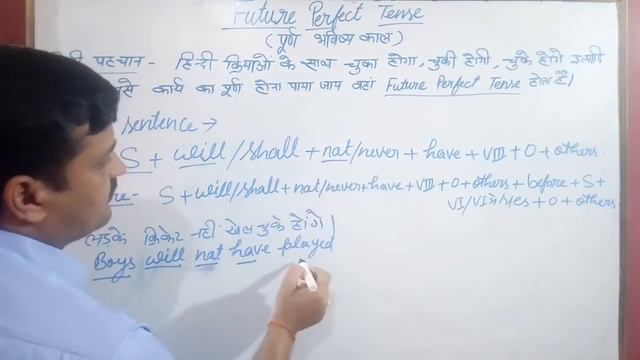 Future Perfect Tense
(पूर्ण भविष्य काल)
पहचान - हिन्दी क्रियाओं के साथ चुका होगा, चुकी होगी, चुके होंगे इत्यादि
कार्य का पूर्ण होना पाया जाय वहां Future Perfect Tense होता है।
sentence →
S + will/shall + nat/never + have + VIII + O + others.
S + will/shall + nat/never + have + VIII + O + others + before + S +
VI/VI in s/es + O + others.
लड़के क्रिकेट नहीं खेल चुके होंगे।
Boys will nat have played